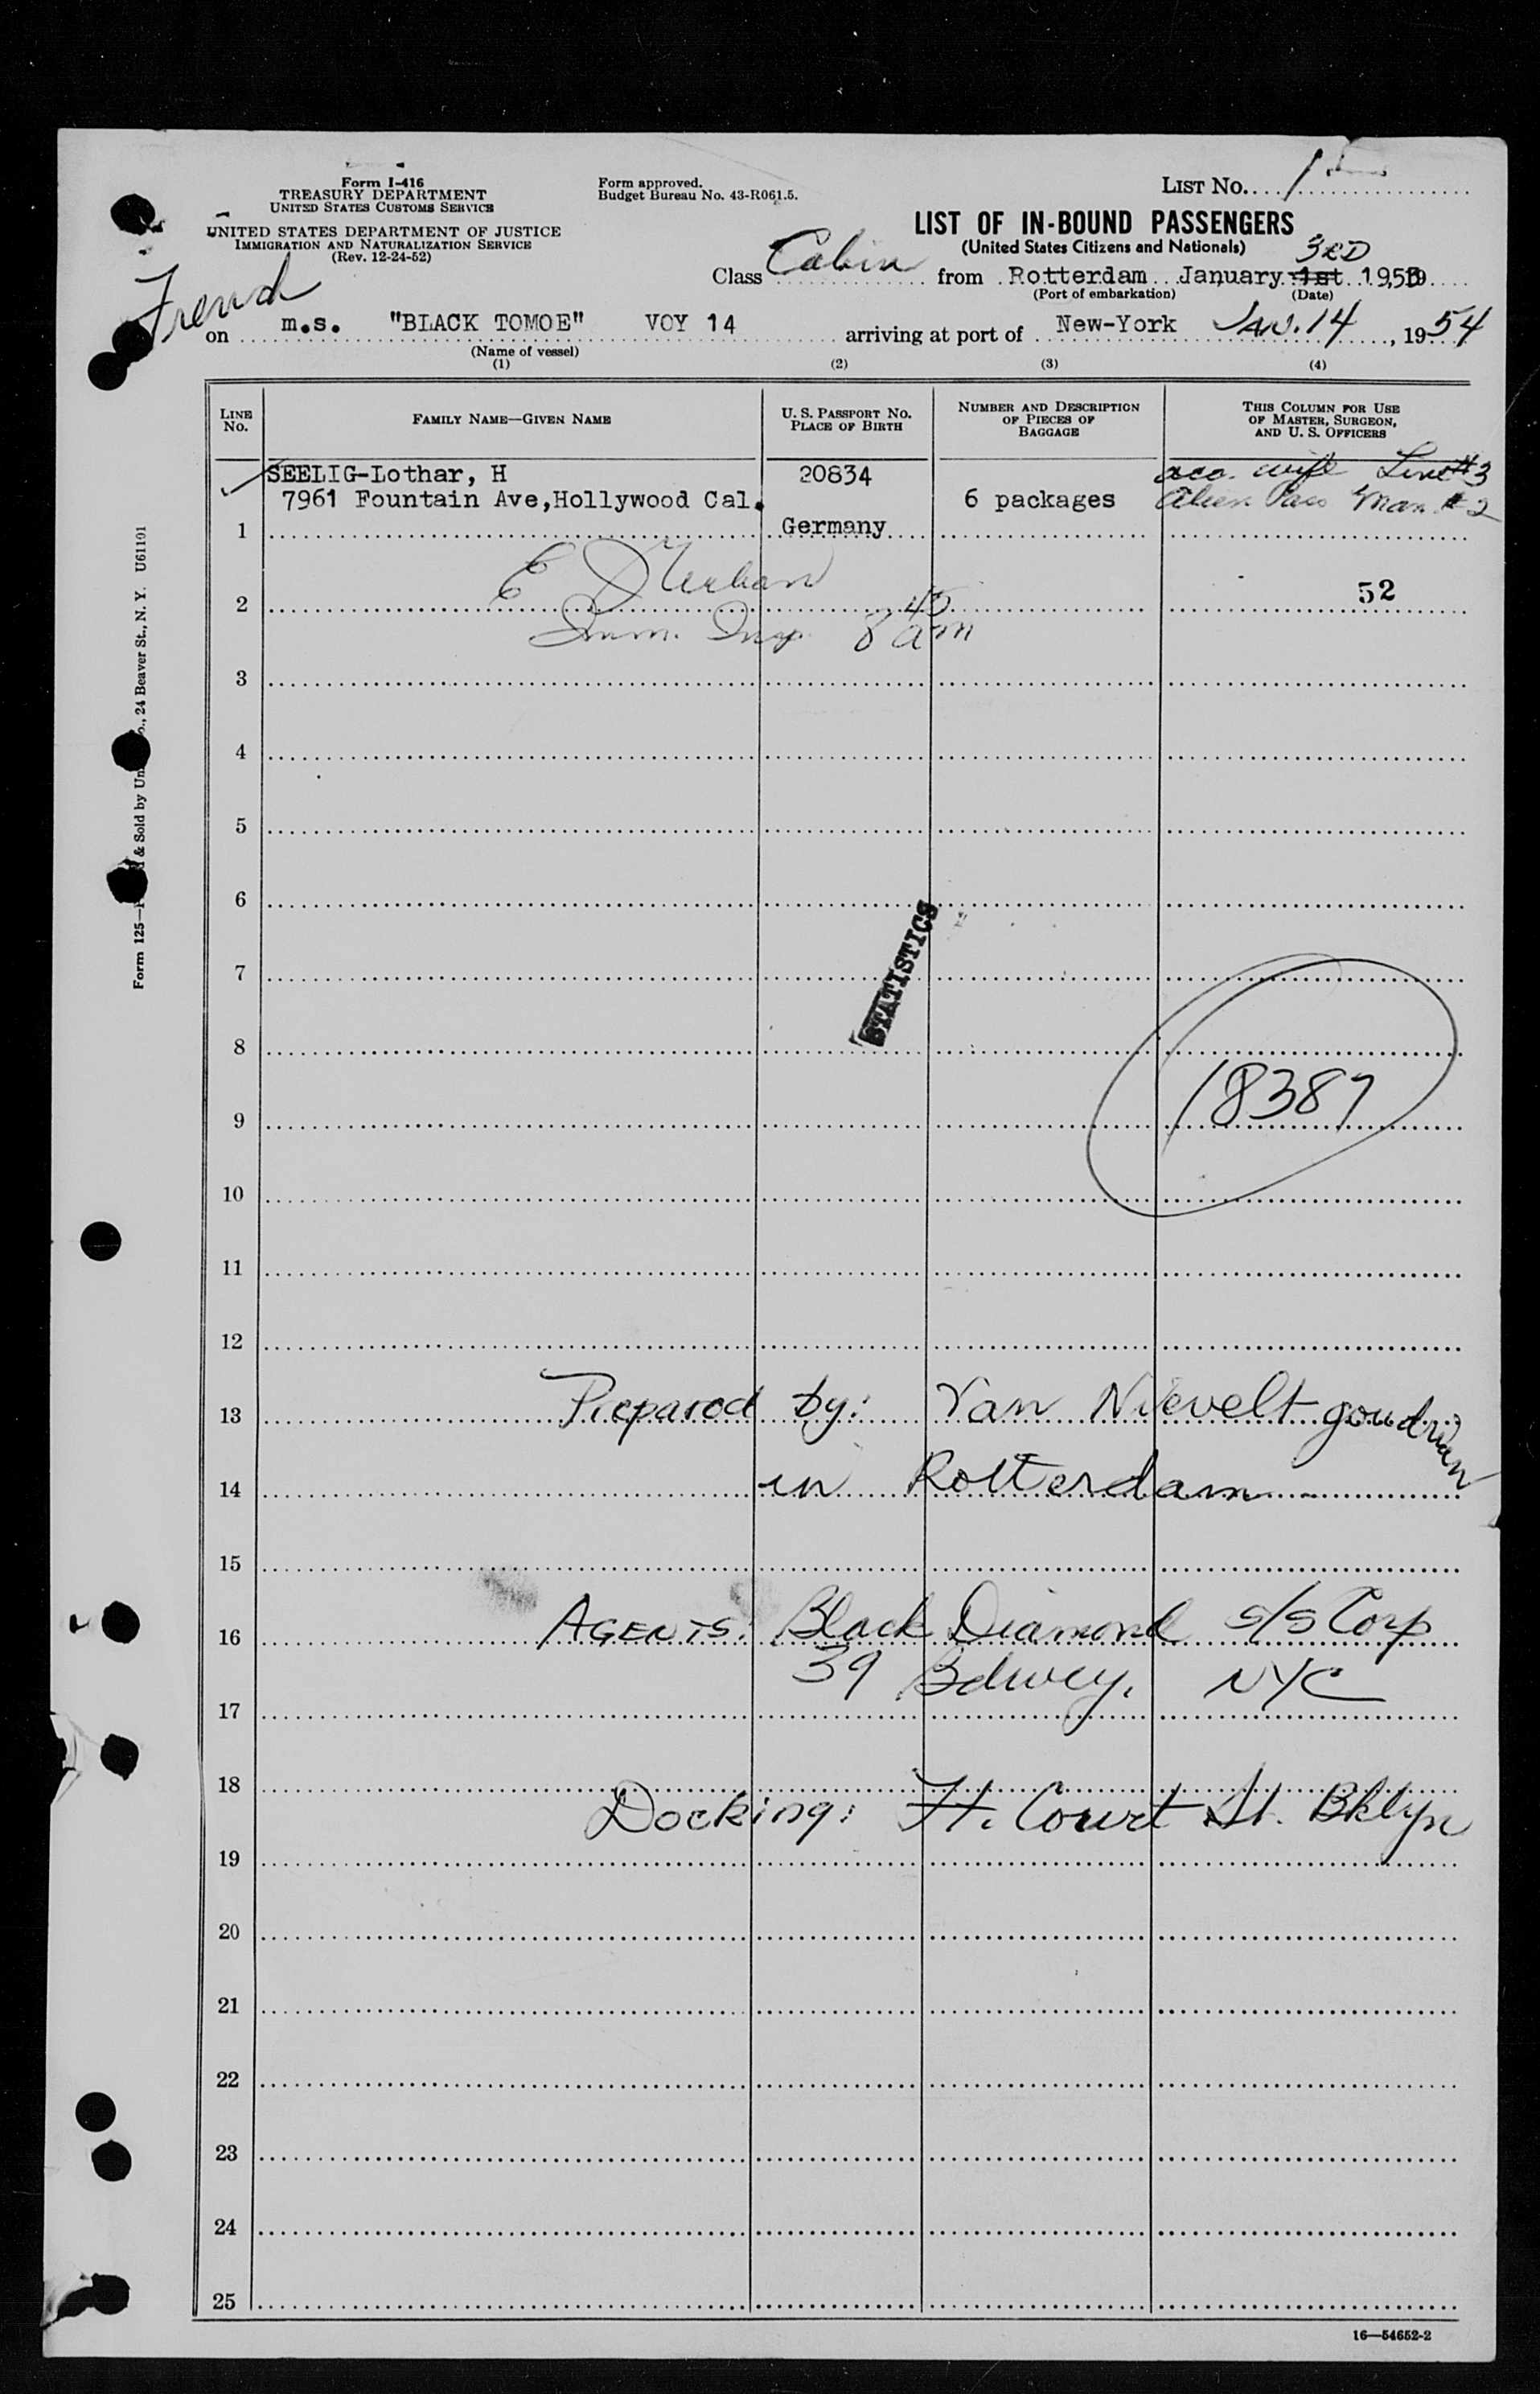 Form I-416
TREASURY DEPARTMENT
UNITED STATES CUSTOMS SERVICE
UNITED STATES DEPARTMENT OF JUSTICE
IMMIGRATION AND NATURALIZATION SERVICE
(Rev. 12-24-52)
Form approved.
Budget Bureau No. 43-R061.5.
LIST No. 1
LIST OF IN-BOUND PASSENGERS
(United States Citizens and Nationals)
3RD
Class Cabin from Rotterdam January 1st 195
(Port of embarkation) (Date)
on m.s. "BLACK TOMOE" VOY 14 arriving at port of New-York Jan. 14, 1954
(Name of vessel)
(1) (2) (3) (4)
LINE No. FAMILY NAME—GIVEN NAME U. S. PASSPORT No. PLACE OF BIRTH NUMBER AND DESCRIPTION OF PIECES OF BAGGAGE THIS COLUMN FOR USE OF MASTER, SURGEON, AND U. S. OFFICERS
SEELIG-Lothar, H 20834 acc. wife Line #3
7961 Fountain Ave,Hollywood Cal. 6 packages Alien Pass Man. #2
1 Germany
E
2 52
Imm. Insp. 8 45 am
3
4
5
6
STATISTICS
7
8
18387
9
10
11
12
13 Prepared by: Van Nievelt goudrian
14 in Rotterdam
15
16 AGENTS: Black Diamond s/s Corp
39 Bdwey, NYC
17
18
Docking: Ft. Court St. Bklyn
19
20
21
22
23
24
25
16—54652-2
Form 125— & Sold by Un o., 24 Beaver St., N. Y. U61101